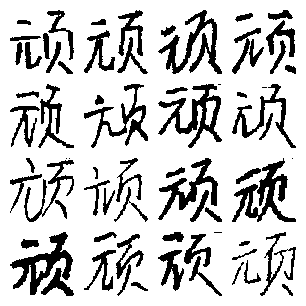 顽顽顽顽
顽顽顽顽
顽顽顽顽
顽顽顽顽